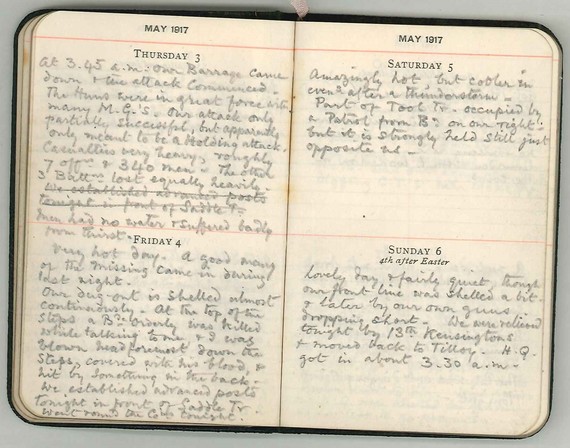 MAY 1917
THURSDAY 3
At 3.45 a.m. our Barrage came
down & the attack commenced.
The Huns were in great force with
many M.G's. Our attack only
partially successful, but apparently
only meant to be a Holding attack.
Casualties very heavy, roughly
7 offrs & 340 men - The other
3 Battns lost equally heavily.
We established advanced posts
tonight in front of Saddle Tr.
Men had no water & suffered badly
from thirst.
FRIDAY 4
Very hot day. A good many
of the missing came in during
last night.
Our dug-out is shelled almost
continuously. At the top of the
steps a Bn Orderly was killed
while talking to me & I was
blown head foremost down the
steps, covered with his blood, &
hit by something in the back.
We established advanced posts
tonight in front of Saddle Tr.
Went round the Coys tonight.
MAY 1917
SATURDAY 5
Amazingly hot - but cooler in
eveng after a thunderstorm -
Part of Tool Tr. occupied by
a Patrol from Bn on our right
but it is strongly held still just
opposite us -
SUNDAY 6
4th after Easter
Lovely day & fairly quiet, though
our front line was shelled a bit -
& later by our own guns
dropping short - We were relieved
tonight by 13th Kensingtons
& moved back to Tilloy. H.Q.
got in about 3.30 a.m -